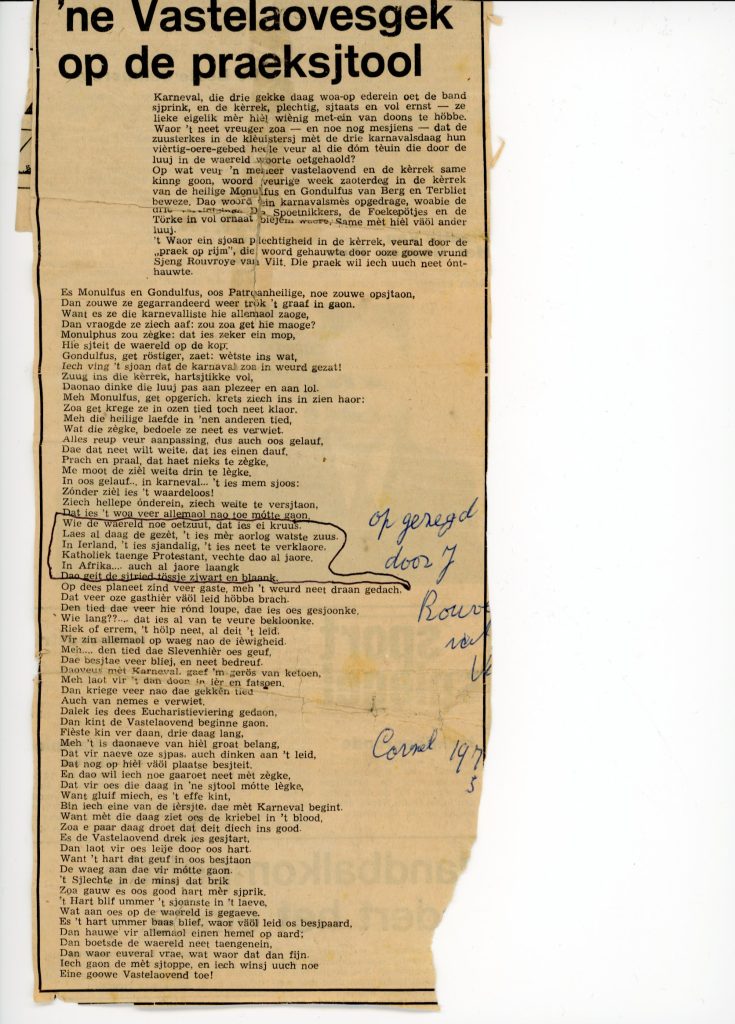 'ne Vastelaovesgek
op de praeksjtool
Karneval, die drie gekke daag woa-op ederein oet de band
sjprink, en de kèrrek, plechtig, sjtaats en vol ernst — ze
lieke eigelik mèr hièl wiènig met-ein van doons te höbbe.
Waor 't neet vreuger zoa — en noe nog mesjiens — dat de
zuusterkes in de klèuistersj mèt de drie karnavalsdaag hun
vièrtig-oere-gebed heele veur al die dóm tèuin die door de
luuj in de waereld woorte oetgehaold?
Op wat veur 'n menieer vastelaovend en de kèrrek same
kinne goon, woord veurige week zaoterdeg in de kèrrek
van de heilige Monulfus en Gondulfus van Berg en Terbliet
beweze. Dao woord ein karnavalsmès opgedrage, woabie de
drie De Spoetnikkers, de Foekepötjes en de
Törke in vol ornaat biejein waore. Same mèt hièl väöl ander
luuj.
't Waor ein sjoan plechtigheid in de kèrrek, veural door de
„praek op rijm", die woord gehauwte door ooze goowe vrund
Sjeng Rouvroye van Vilt. Die praek wil iech uuch neet ónt-
hauwte.
Es Monulfus en Gondulfus, oos Patroanheilige, noe zouwe opsjtaon,
Dan zouwe ze gegarrandeerd weer trök 't graaf in gaon.
Want es ze die karnevalliste hie allemaol zaoge,
Dan vraogde ze ziech aaf: zou zoa get hie maoge?
Monulphus zou zègke: dat ies zeker ein mop,
Hie sjteit de waereld op de kop.
Gondulfus, get röstiger, zaet: wètste ins wat,
Iech ving 't sjoan dat de karnaval zoa in weurd gezat!
Zuug ins die kèrrek, hartsjtikke vol,
Daonao dinke die luuj pas aan plezeer en aan lol.
Meh Monulfus, get opgerich, krets ziech ins in zien haor:
Zoa get krege ze in ozen tied toch neet klaor.
Meh die heilige laefde in 'nen anderen tied,
Wat die zègke, bedoele ze neet es verwiet.
Alles reup veur aanpassing, dus auch oos gelauf,
Dae dat neet wilt weite, dat ies einen dauf.
Prach en praal, dat haet nieks te zègke,
Me moot de zièl weite drin te lègke.
In oos gelauf... in karneval... 't ies mem sjoos:
Zónder zièl ies 't waardeloos!
Ziech hellepe ónderein, ziech weite te versjtaon,
Dat ies 't woa veer allemaol nao toe mótte gaon.
Wie de waereld noe oetzuut, dat ies ei kruus.
Laes al daag de gezèt, 't ies mèr aorlog watste zuus.
In Ierland, 't ies sjandalig, 't ies neet te verklaore.
Katholiek taenge Protestant, vechte dao al jaore.
In Afrika.... auch al jaore laangk
Dao geit de sjtried tössje zjwart en blaank.
Op dees planeet zind veer gaste, meh 't weurd neet draan gedach.
Dat veer oze gasthièr väöl leid höbbe brach.
Den tied dae veer hie rónd loupe, dae ies oes gesjoonke,
Wie lang??.... dat ies al van te veure bekloonke.
Riek of errem, 't hölp neet, al deit 't leid.
Vir zin allemaol op waeg nao de ièwigheid.
Meh.... den tied dae Slevenhièr oes geuf,
Dae besjtae veer bliej, en neet bedreuf.
Daoveus mèt Karneval, gaef 'm gerös van ketoen,
Meh laot vir 't dan doon in ièr en fatsoen,
Dan kriege veer nao dae gekkën tied
Auch van nemes e verwiet.
Dalek ies dees Eucharistieviering gedaon,
Dan kint de Vastelaovend beginne gaon.
Fièste kin ver daan, drie daag lang,
Meh 't is daonaeve van hièl groat belang,
Dat vir naeve oze sjpas, auch dinken aan 't leid,
Dat nog op hièl väöl plaatse besjteit.
En dao wil iech noe gaaroet neet mèt zègke,
Dat vir oes die daag in 'ne sjtool mótte lègke,
Want gluif miech, es 't effe kint,
Bin iech eine van de ièrsjte, dae mèt Karneval begint.
Want mèt die daag ziet oes de kriebel in 't blood,
Zoa e paar daag droet dat deit diech ins good.
Es de Vastelaovend drek ies gesjtart,
Dan laot vir oes leije door oos hart.
Want 't hart dat geuf in oos besjtaon
De waeg aan dae vir mótte gaon.
't Sjlechte in de minsj dat brik
Zoa gauw es oos good hart mèr sjprik.
't Hart blif ummer 't sjoanste in 't laeve,
Wat aan oes op de waereld is gegaeve.
Es 't hart ummer baas blief, waor väöl leid os besjpaard,
Dan hauwe vir allemaol einen hemel op aard;
Dan boetsde de waereld neet taengenein,
Dan waor euveral vrae, wat waor dat dan fijn.
Iech gaon de mèt sjtoppe, en iech winsj uuch noe
Eine goowe Vastelaovend toe!
op gezegd
door J
Rouv
Carnel 197